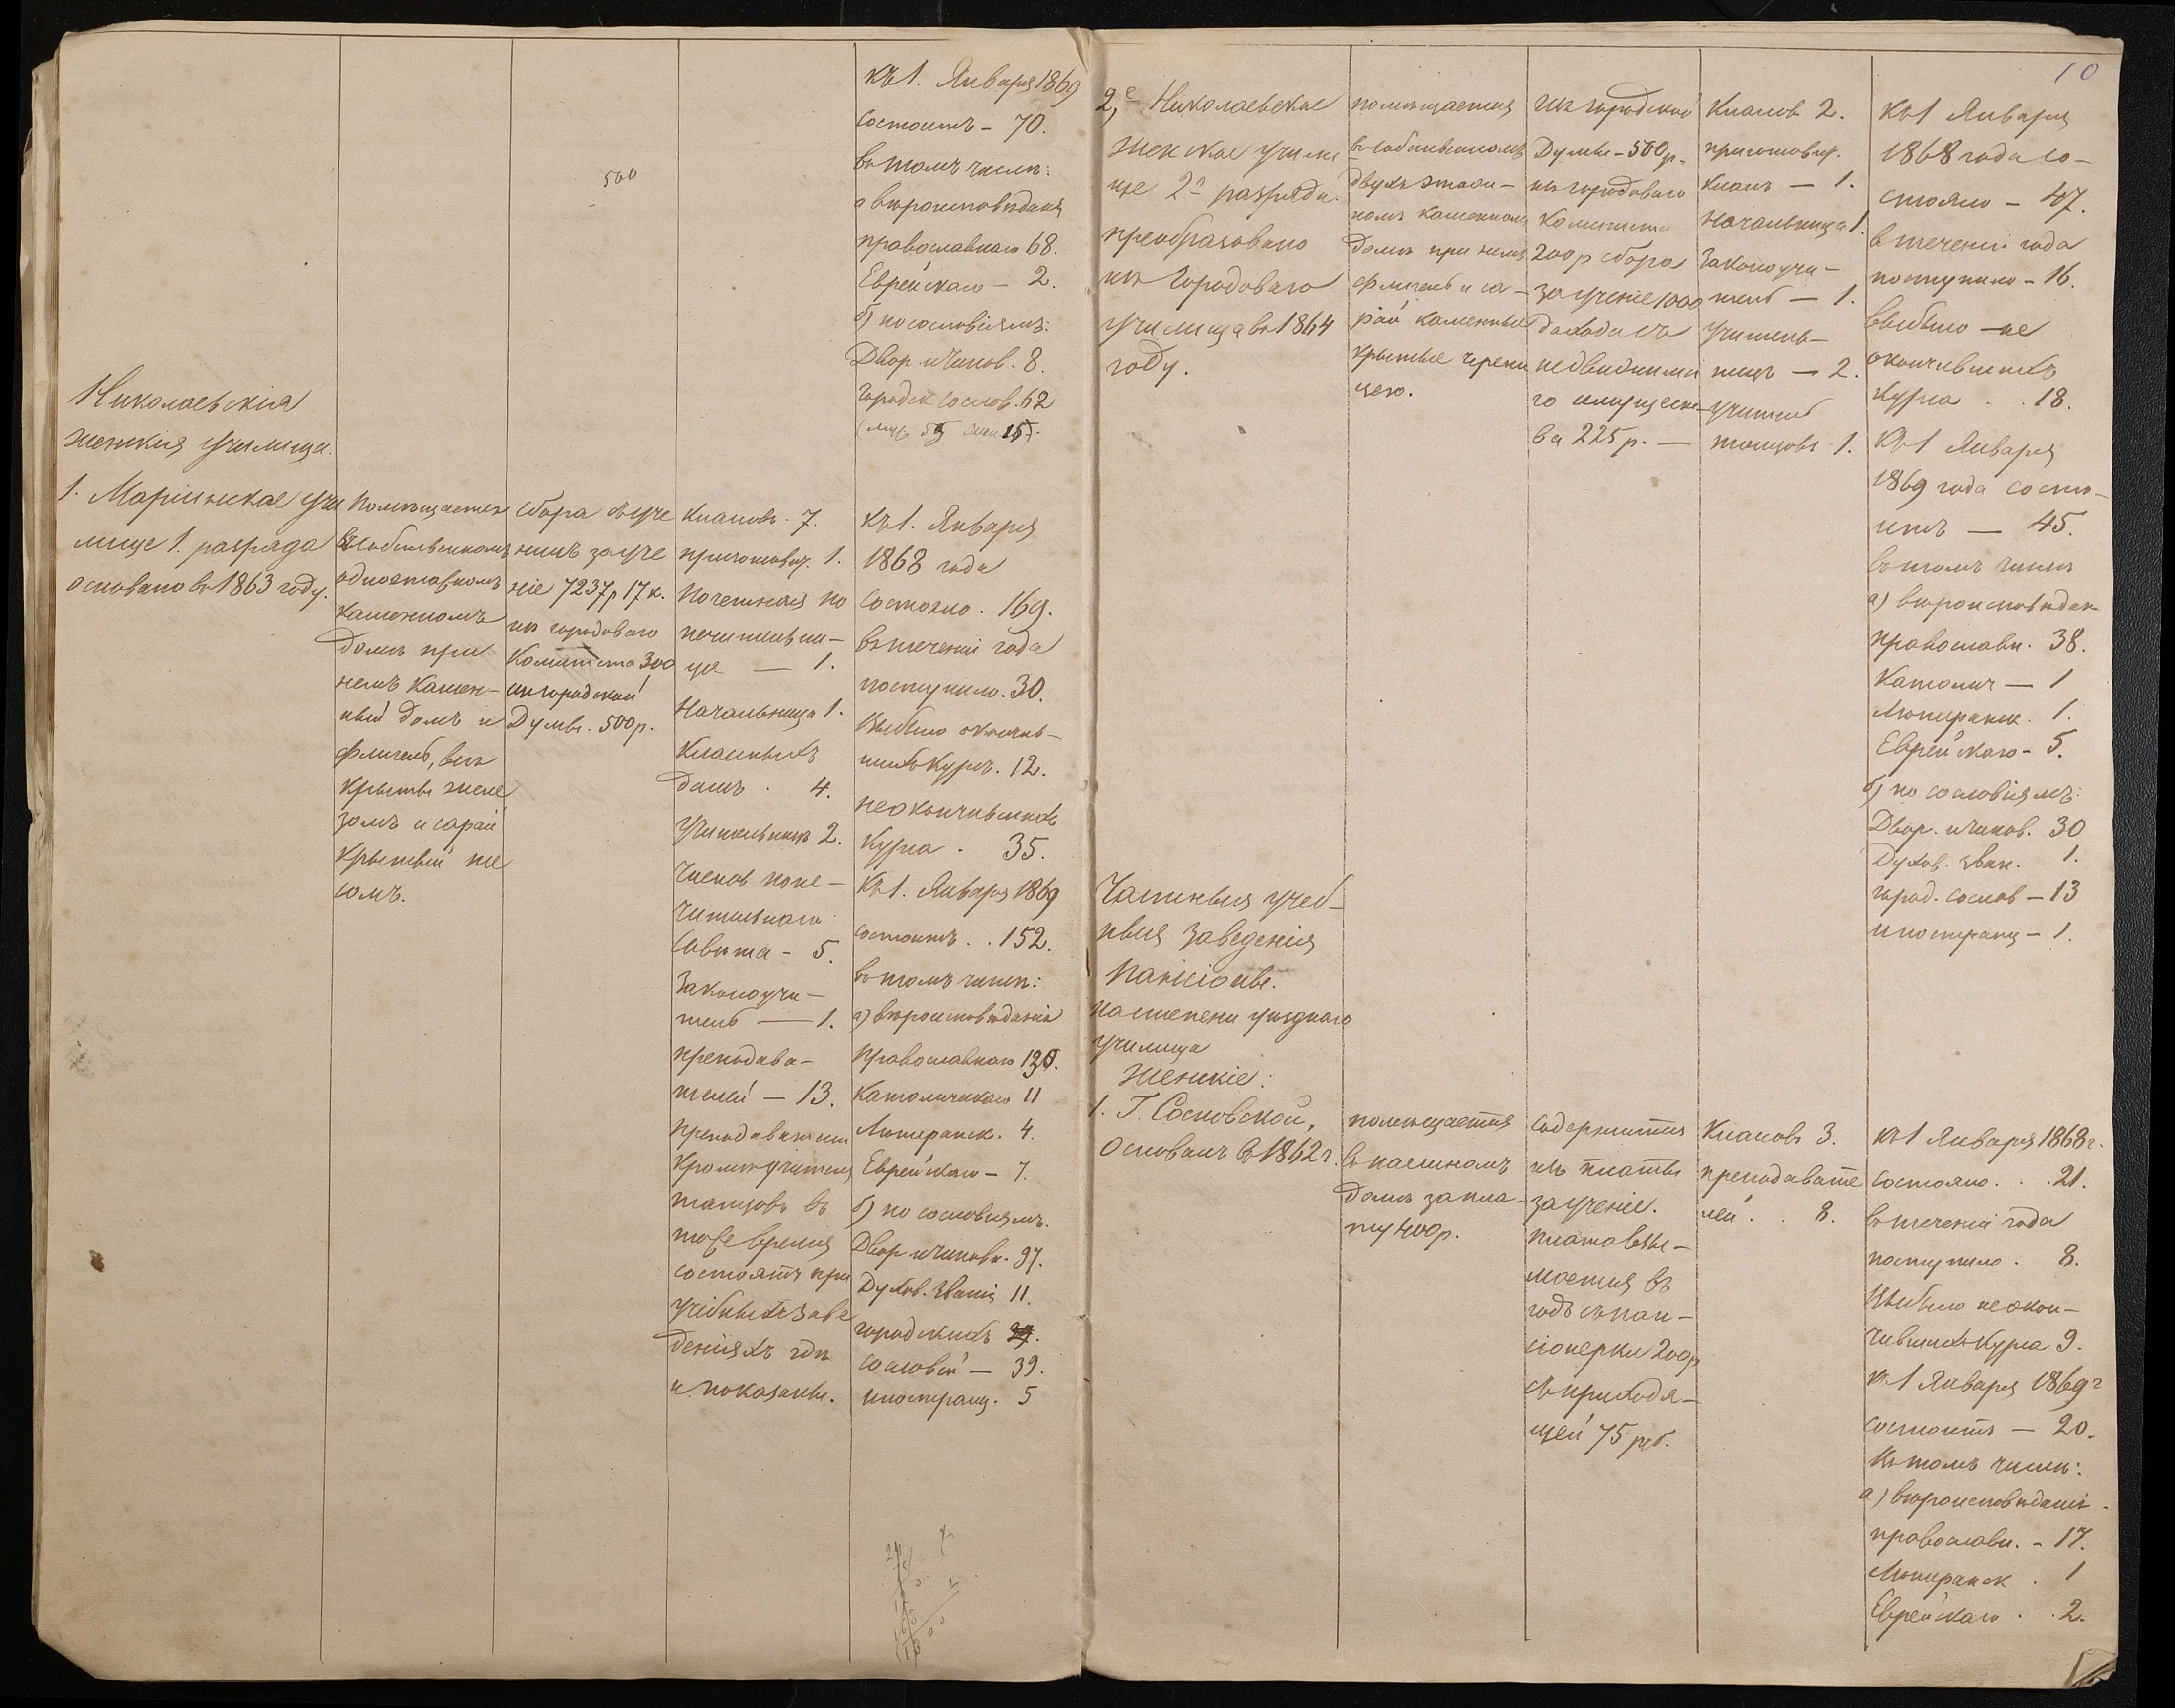 500
къ 1. Января 1869
состоитъ – 70.
въ томъ числѣ:
а) вѣроисповѣданія
православнаго 68.
Еврейскаго – 2.
б) по сословіямъ:
Двор. и Чинов. 8.
Городск. сослов. 62
Николаевскія
женскія училища.
1. Маріинское учи
лище 1. разряда
основано въ 1863 году.
Помѣщается
въ собственномъ
одноэтажномъ
каменномъ
домѣ при
немъ камен-
ный домъ и
флигель, всѣ
крыты желе
зомъ и сарай
крытый те
сомъ.
Сбора съ уче
ницъ за уче
ніе 7237 р 17 к.
изъ городоваго
Комитета 300
изъ городской
Думы. 500 р.
Классовъ. 7.
приготовит. 1.
Почетная по
печительни-
ца — 1.
Начальница 1.
Классныхъ
дамъ . 4.
Учительницъ 2.
Членовъ попе-
чительнаго
Совѣта – 5.
Законоучи-
тель — 1.
преподава-
телей – 13.
преподаватели
кромѣ учителя
танцовъ въ
тоже время
состоятъ при
учебныхъ заве
деніяхъ гдѣ
и показаны.
Къ 1. Января
1868 года
состояло . 169.
въ теченіи года
поступило. 30.
Выбыло окончив-
шихъ Курсъ. 12.
неокончившихъ
Курса . 35.
Къ 1. Января 1869
состоитъ . . 152.
въ томъ числѣ:
а) вѣроисповѣданія
православнаго 130.
Католическаго 11
Лютеранск. 4.
Еврейскаго – 7.
б) по сословіямъ.
Двор. и Чиновн. 97.
Духов. званія 11.
городскихъ
сословій – 39.
иностранц. 5
10
2,е Николаевское
женское учили
ще 2го разряда.
преобразовано
изъ Городоваго
училища въ 1864
году.
помѣщается
въ собственномъ
двухъ этаж-
номъ каменномъ
домѣ при немъ
флигель и са-
рай каменные
крытые черепи
цею.
изъ городской
Думы – 500 р.
изъ городоваго
Комитета
200 р сбора
за ученіе 1000
дохода съ
недвижима
го имущест-
ва 225 р. —
Классов 2.
приготовит.
класъ — 1.
Начальница 1.
Законоучи-
тель — 1.
Учитель-
ницъ — 2.
Учитель
танцовъ 1.
Къ 1 Января
1868 года со-
стояло – 47.
въ теченіи года
поступило – 16.
выбыло – не
окончившихъ
Курса . . 18.
Къ 1 Января
1869 года состо-
итъ — 45.
въ томъ числѣ
а) вѣроисповѣдан.
православн. 38.
Католич — 1
Лютеранск. 1.
Еврейскаго – 5.
б) по сословіямъ:
Двор. и Чинов. 30
Духов. зван. 1.
город. сослов – 13
иностранц – 1.
Частныя учеб-
ныя заведенія
Пансіоны.
на степени уѣзднаго
училища
Женскіе:
1. Г. Сосновской,
Основанъ въ 1862 г.
помѣщается
въ наемномъ
домѣ за пла-
ту 400 р.
Содержится
изъ платы
за ученіе.
плата взы-
мается въ
годъ съ пан-
сіонерки 200 р
съ приходя-
щей 75 руб.
Классовъ 3.
преподавате
лей . . 8.
Къ 1 Января 1868 г.
состояло . . 21.
въ теченіи года
поступило . 8.
Выбыло неокон-
чившихъ Курса 9.
Къ 1 Января 1869 г
состоитъ — 20.
Въ томъ числѣ:
а) вѣроисповѣданія
православн. – 17.
Лютеранск . 1
Еврейскаго . . 2.